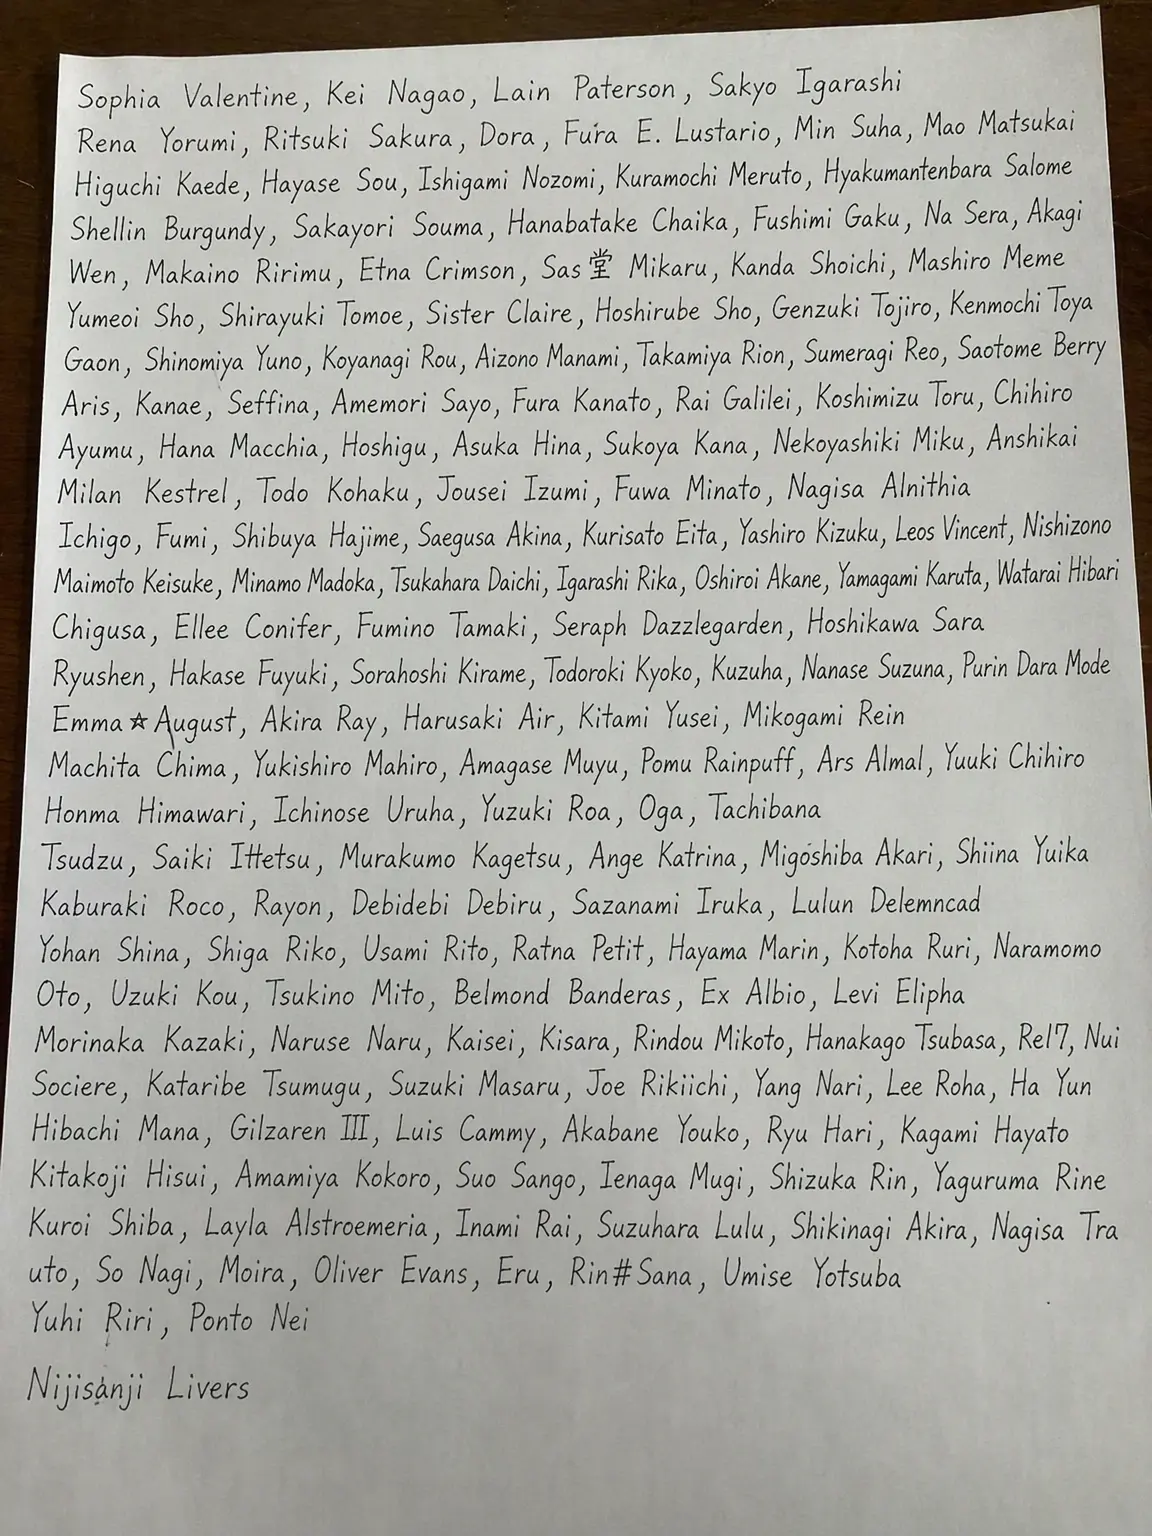 Sophia Valentine, Kei Nagao, Lain Paterson, Sakyo Igarashi
Rena Yorumi, Ritsuki Sakura, Dora, Fura E. Lustario, Min Suha, Mao Matsukai
Higuchi Kaede, Hayase Sou, Ishigami Nozomi, Kuramochi Meruto, Hyakumantenbara Salome
Shellin Burgundy, Sakayori Souma, Hanabatake Chaika, Fushimi Gaku, Na Sera, Akagi
Wen, Makaino Ririmu, Etna Crimson, Sas堂 Mikaru, Kanda Shoichi, Mashiro Meme
Yumeoi Sho, Shirayuki Tomoe, Sister Claire, Hoshirube Sho, Genzuki Tojiro, Kenmochi Toya
Gaon, Shinomiya Yuno, Koyanagi Rou, Aizono Manami, Takamiya Rion, Sumeragi Reo, Saotome Berry
Aris, Kanae, Seffina, Amemori Sayo, Fura Kanato, Rai Galilei, Koshimizu Toru, Chihiro
Ayumu, Hana Macchia, Hoshigu, Asuka Hina, Sukoya Kana, Nekoyashiki Miku, Anshikai
Milan Kestrel, Todo Kohaku, Jousei Izumi, Fuwa Minato, Nagisa Alnithia
Ichigo, Fumi, Shibuya Hajime, Saegusa Akina, Kurisato Eita, Yashiro Kizuku, Leos Vincent, Nishizono
Maimoto Keisuke, Minamo Madoka, Tsukahara Daichi, Igarashi Rika, Oshiroi Akane, Yamagami Karuta, Watarai Hibari
Chigusa, Ellee Conifer, Fumino Tamaki, Seraph Dazzlegarden, Hoshikawa Sara
Ryushen, Hakase Fuyuki, Sorahoshi Kirame, Todoroki Kyoko, Kuzuha, Nanase Suzuna, Purin Dara Mode
Emma☆August, Akira Ray, Harusaki Air, Kitami Yusei, Mikogami Rein
Machita Chima, Yukishiro Mahiro, Amagase Muyu, Pomu Rainpuff, Ars Almal, Yuuki Chihiro
Honma Himawari, Ichinose Uruha, Yuzuki Roa, Oga, Tachibana
Tsudzu, Saiki Ittetsu, Murakumo Kagetsu, Ange Katrina, Migoshiba Akari, Shiina Yuika
Kaburaki Roco, Rayon, Debidebi Debiru, Sazanami Iruka, Lulun Delemncad
Yohan Shina, Shiga Riko, Usami Rito, Ratna Petit, Hayama Marin, Kotoha Ruri, Naramomo
Oto, Uzuki Kou, Tsukino Mito, Belmond Banderas, Ex Albio, Levi Elipha
Morinaka Kazaki, Naruse Naru, Kaisei, Kisara, Rindou Mikoto, Hanakago Tsubasa, Rel7, Nui
Sociere, Kataribe Tsumugu, Suzuki Masaru, Joe Rikiichi, Yang Nari, Lee Roha, Ha Yun
Hibachi Mana, Gilzaren III, Luis Cammy, Akabane Youko, Ryu Hari, Kagami Hayato
Kitakoji Hisui, Amamiya Kokoro, Suo Sango, Ienaga Mugi, Shizuka Rin, Yaguruma Rine
Kuroi Shiba, Layla Alstroemeria, Inami Rai, Suzuhara Lulu, Shikinagi Akira, Nagisa Tra
uto, So Nagi, Moira, Oliver Evans, Eru, Rin#Sana, Umise Yotsuba
Yuhi Riri, Ponto Nei
Nijisanji Livers